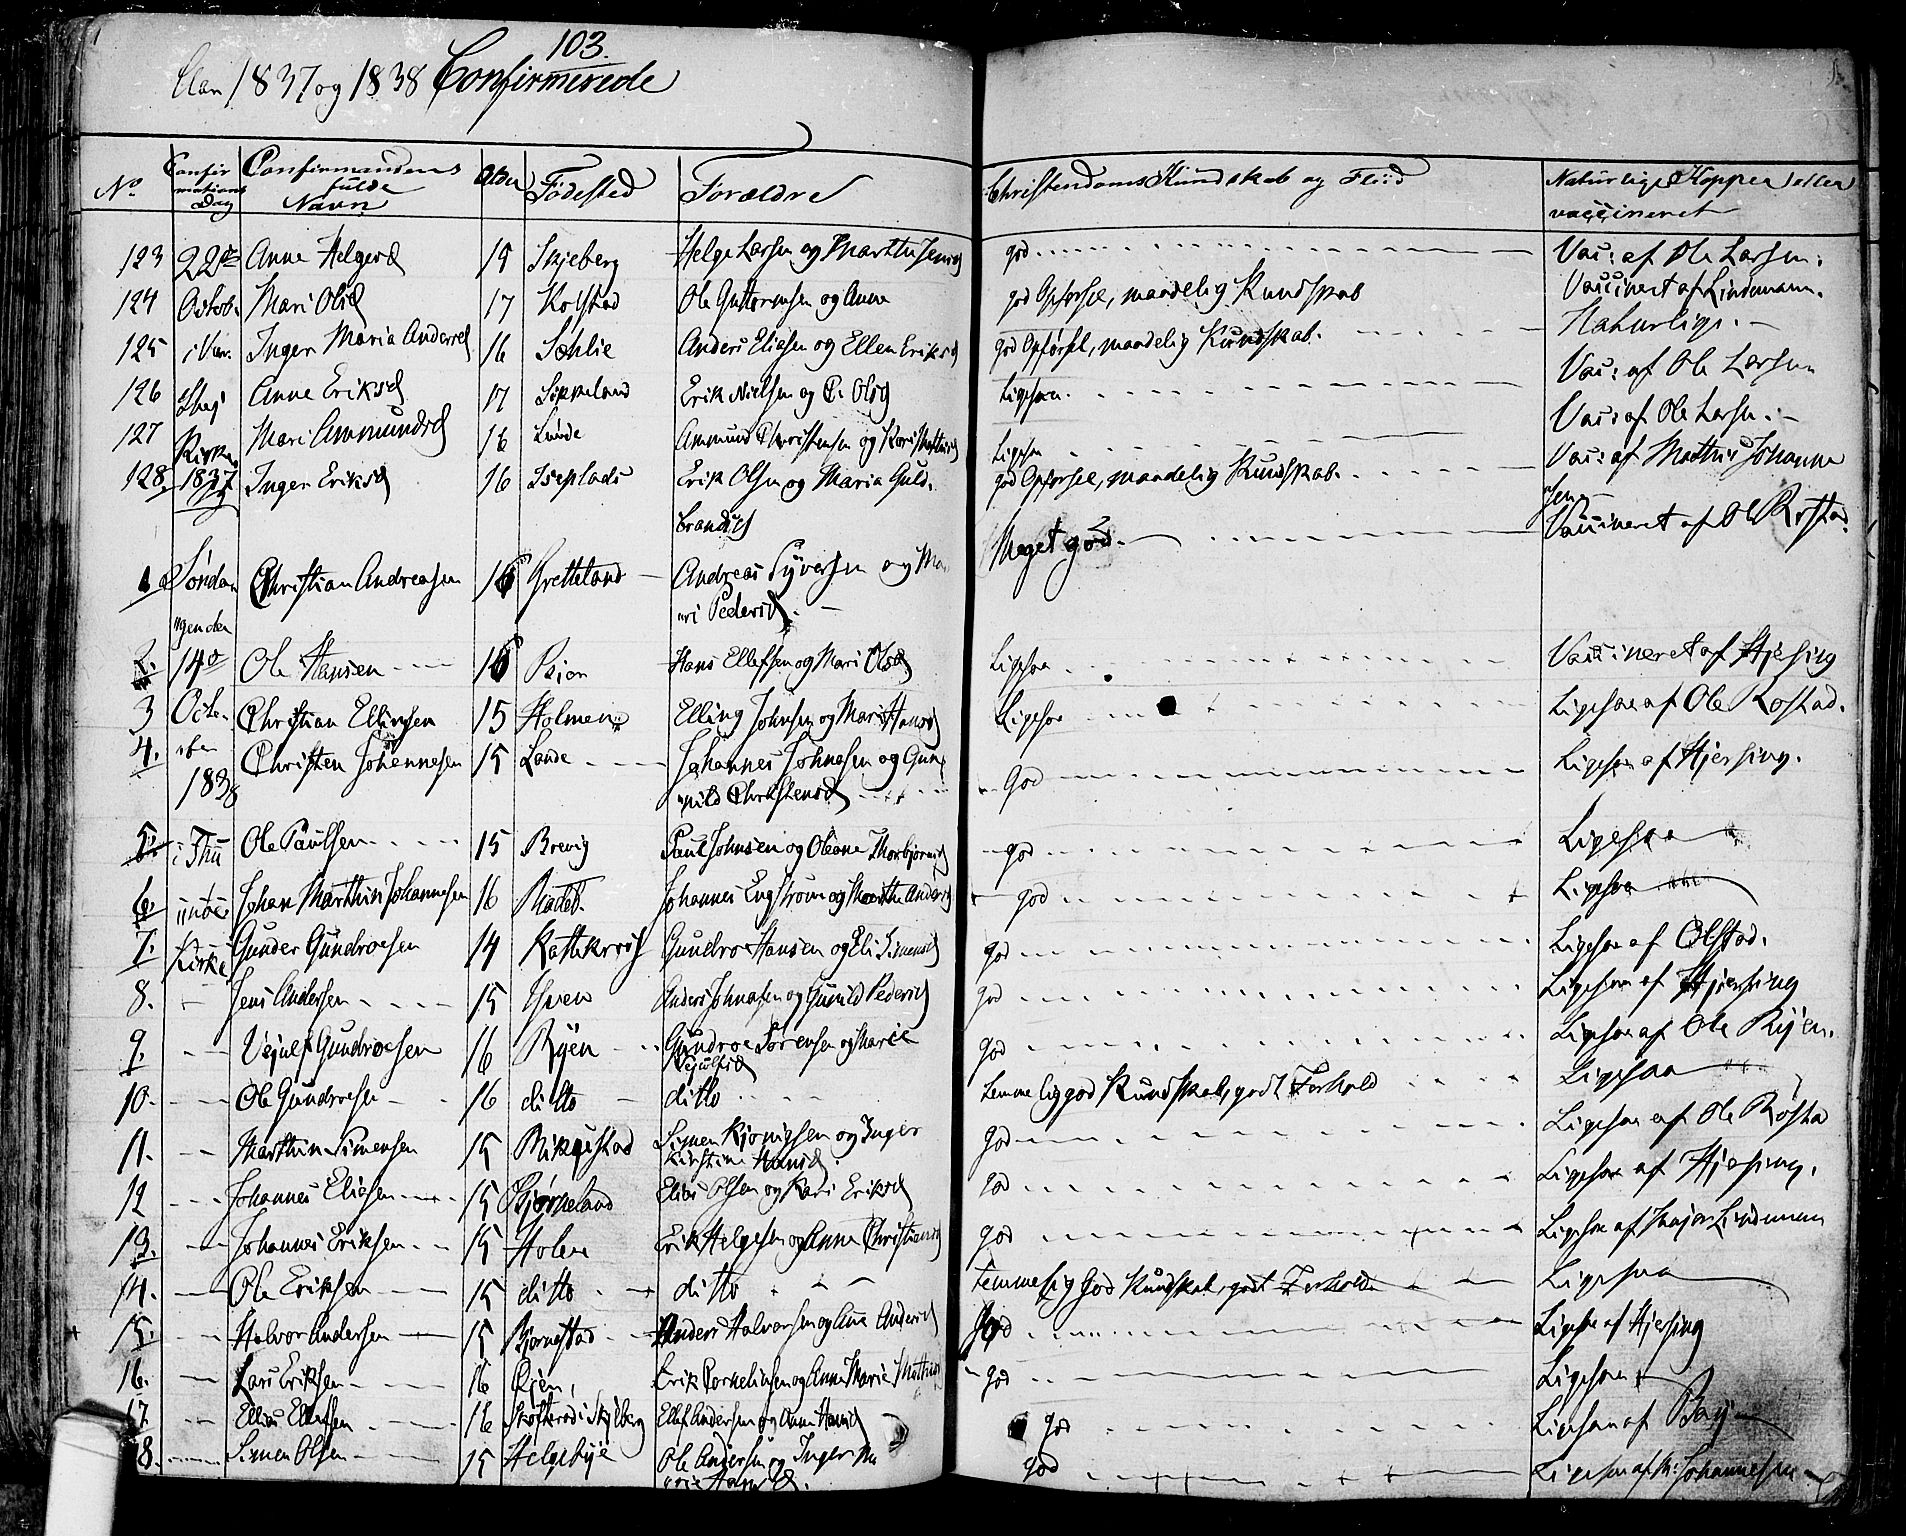 103.
Aar 1837 og 1838 Confirmerede
No. Confirmations Dag Confirmandens fulde Navn Alder Fødested Forældre Christendoms Kundskab og Fliid Naturlige Kopper eller vaccineret
123 22de Anne Helgesd 15 Skjeberg Helge Larsen og Marthe Jensd god Vac: af Ole Larsen.
124 Octob. Mari Olsd 17 Kolstad Ole Guttormsen og Anne god Opførsel, maadelig Kundskab Vaccineret af Lindemann.
125 i Var. Inger Maria Andersd 16 Sæhlie Anders Eliasen og Ellen Eriksd god Opførsel, maadelig Kundskab. Naturlige.
126 Anne Eriksd 17 Erik Nielsen og Olsd Ligesaa. Vac: af Ole Larsen
127 Mari Ammundsd 16 Lunde Ammund Christensen og Kari Ligesaa Vac: af Ole Larsen.
128. 1837 Inger Eriksd 16 Erik Olsen og Maria Guld- god Opførsel, maadelig Kundskab. Vac: af Mathis Johanne
brandsd sen
1 Søndagen den Christian Andreasen 16 Gretteland Andreas Syversen og Ma Meget god. Vaccineret af Ole Røstad.
ri Pedersd.
2. 14de Ole Hansen 16 Hans Ellefsen og Mari Olsd Ligesaa Vaccineret af Hjersing
3 Octo- Christian Ellingsen 15 Holmen Elling Johnsen og Mari Hansd Ligesaa Ligesaa af Ole Røstad.
4. ber Christen Johannesen 15 Lande Johannes Johnesen og Gun God Ligesaa af Hjersing.
1838 nild Christensd
5. i Thu Ole Paulsen 15 Brevig Paul Johnsen og Oleane Thorbjørnsd god Ligesaa
6. nøe Johan Marthin Johannesen 16 Johannes Engstrøm og Marthe Andersd god Ligesaa
7. Kirke Gunder Gundroesen 14 Gundro Hansen og Eli Simensd God Ligesaa af Olstad.
8. Jens Andersen 15 Anders Johnesen og Gunild Pedersd God Ligesaa af Hjersing
9. Vejulf Gundroesen 16 Ryen Gundroe Sørensen og Marie God Ligesaa af Ole Ryen.
Vejulfsd
10. Ole Gundroesen 16 ditto ditto Temmelig god Kundskab, godt Forhold Ligesaa
11. Marthin Simensen 15 Simen og Inger God Ligesaa af Ole Røsta
Kirstine Hansd.
12 Johannes Eliasen 15 Bjørneland Elias Olsen og Kari Eriksd God Ligesaa af Hjersing.
13. Johannes Eriksen 15 Holen Erik Helgesen og Anne Christiansd God Ligesaa af Major Lindeman
14. Ole Eriksen 15 ditto ditto Temmelig God Kundskab, godt Forhold Ligesaa
15. Halvor Andersen 15 Bjørnstad Anders Halvorsen og Ane Andersd God Ligesaa af Hjersing
16. Lars Eriksen 16 Erik Cornelinsen og Anne Marie god Ligesaa
17. Ellius Ellefsen 16 i Skjeberg Ellef Andersen og Anne Hansd god Ligesaa af Berg
8. Simen Olsen 15 Helgebye Ole Andersen og Inger Ma god Ligesaa af M: Johannesen
rie Hansd.